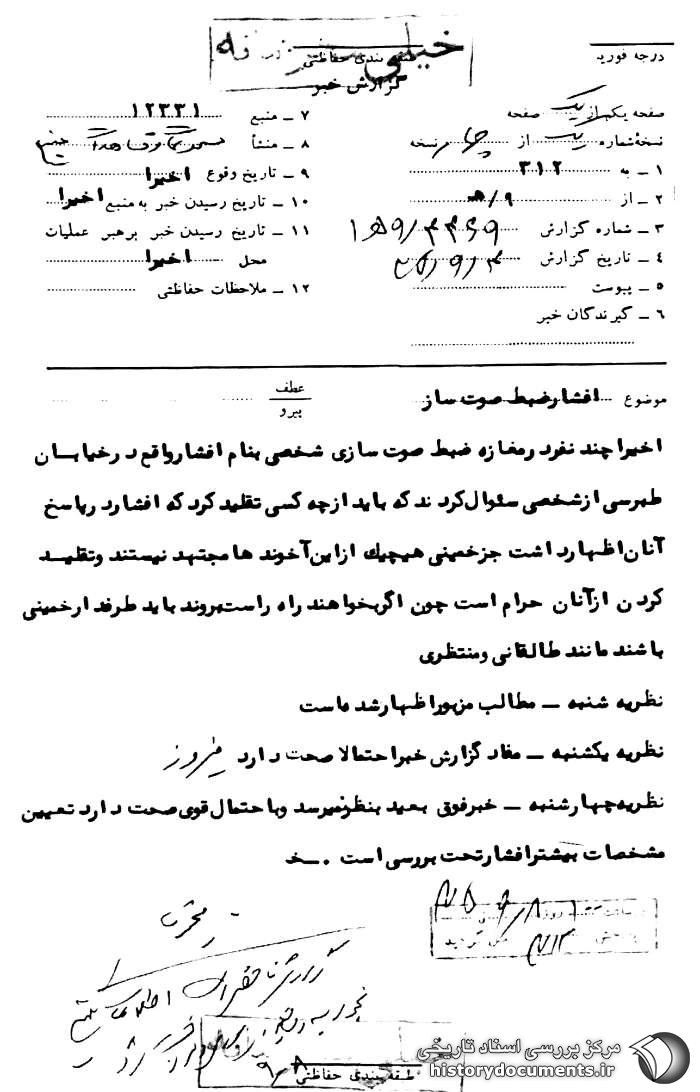 خیلی محرمانه
طبقه بندی حفاظتی
گزارش خبر
درجه فوریت
صفحه یکم از یک صفحه
نسخهٔ شماره یک از چهار نسخه
۱ ــ به ۳۱۲
۲ ــ از ۹/ه
۳ ــ شماره گزارش
۴ ــ تاریخ گزارش
۵ ــ پیوست
۶ ــ گیرندگان خبر
۷ ــ منبع ۱۲۳۳۱
۸ ــ منشأ
۹ ــ تاریخ وقوع اخیرا
۱۰ ــ تاریخ رسیدن خبر به منبع اخیرا
۱۱ ــ تاریخ رسیدن خبر برهبر عملیات
محل اخیرا
۱۲ ــ ملاحظات حفاظتی
موضوع افشار ضبط صوت ساز
عطف
پیرو
اخیرا چند نفر در مغازه ضبط صوت سازی شخصی بنام افشار واقع در خیابان
طبرسی از شخصی سئوال کردند که باید از چه کسی تقلید کرد که افشار در پاسخ
آنان اظهار داشت جز خمینی هیچیک از این آخوند ها مجتهد نیستند و تقلید
کردن از آنان حرام است چون اگر بخواهند راه راست بروند باید طرفدار خمینی
باشند مانند طالقانی و منتظری
نظریه شنبه ــ مطالب مزبور اظهار شده است
نظریه یکشنبه ــ مفاد گزارش خبر احتمالا صحت دارد
نظریه چهارشنبه ــ خبر فوق بعید بنظر نمیرسد و با احتمال قوی صحت دارد تعیین
مشخصات بیشتر افشار تحت بررسی است
طبقه بندی حفاظتی
مرکز بررسی اسناد تاریخی
historydocuments.ir